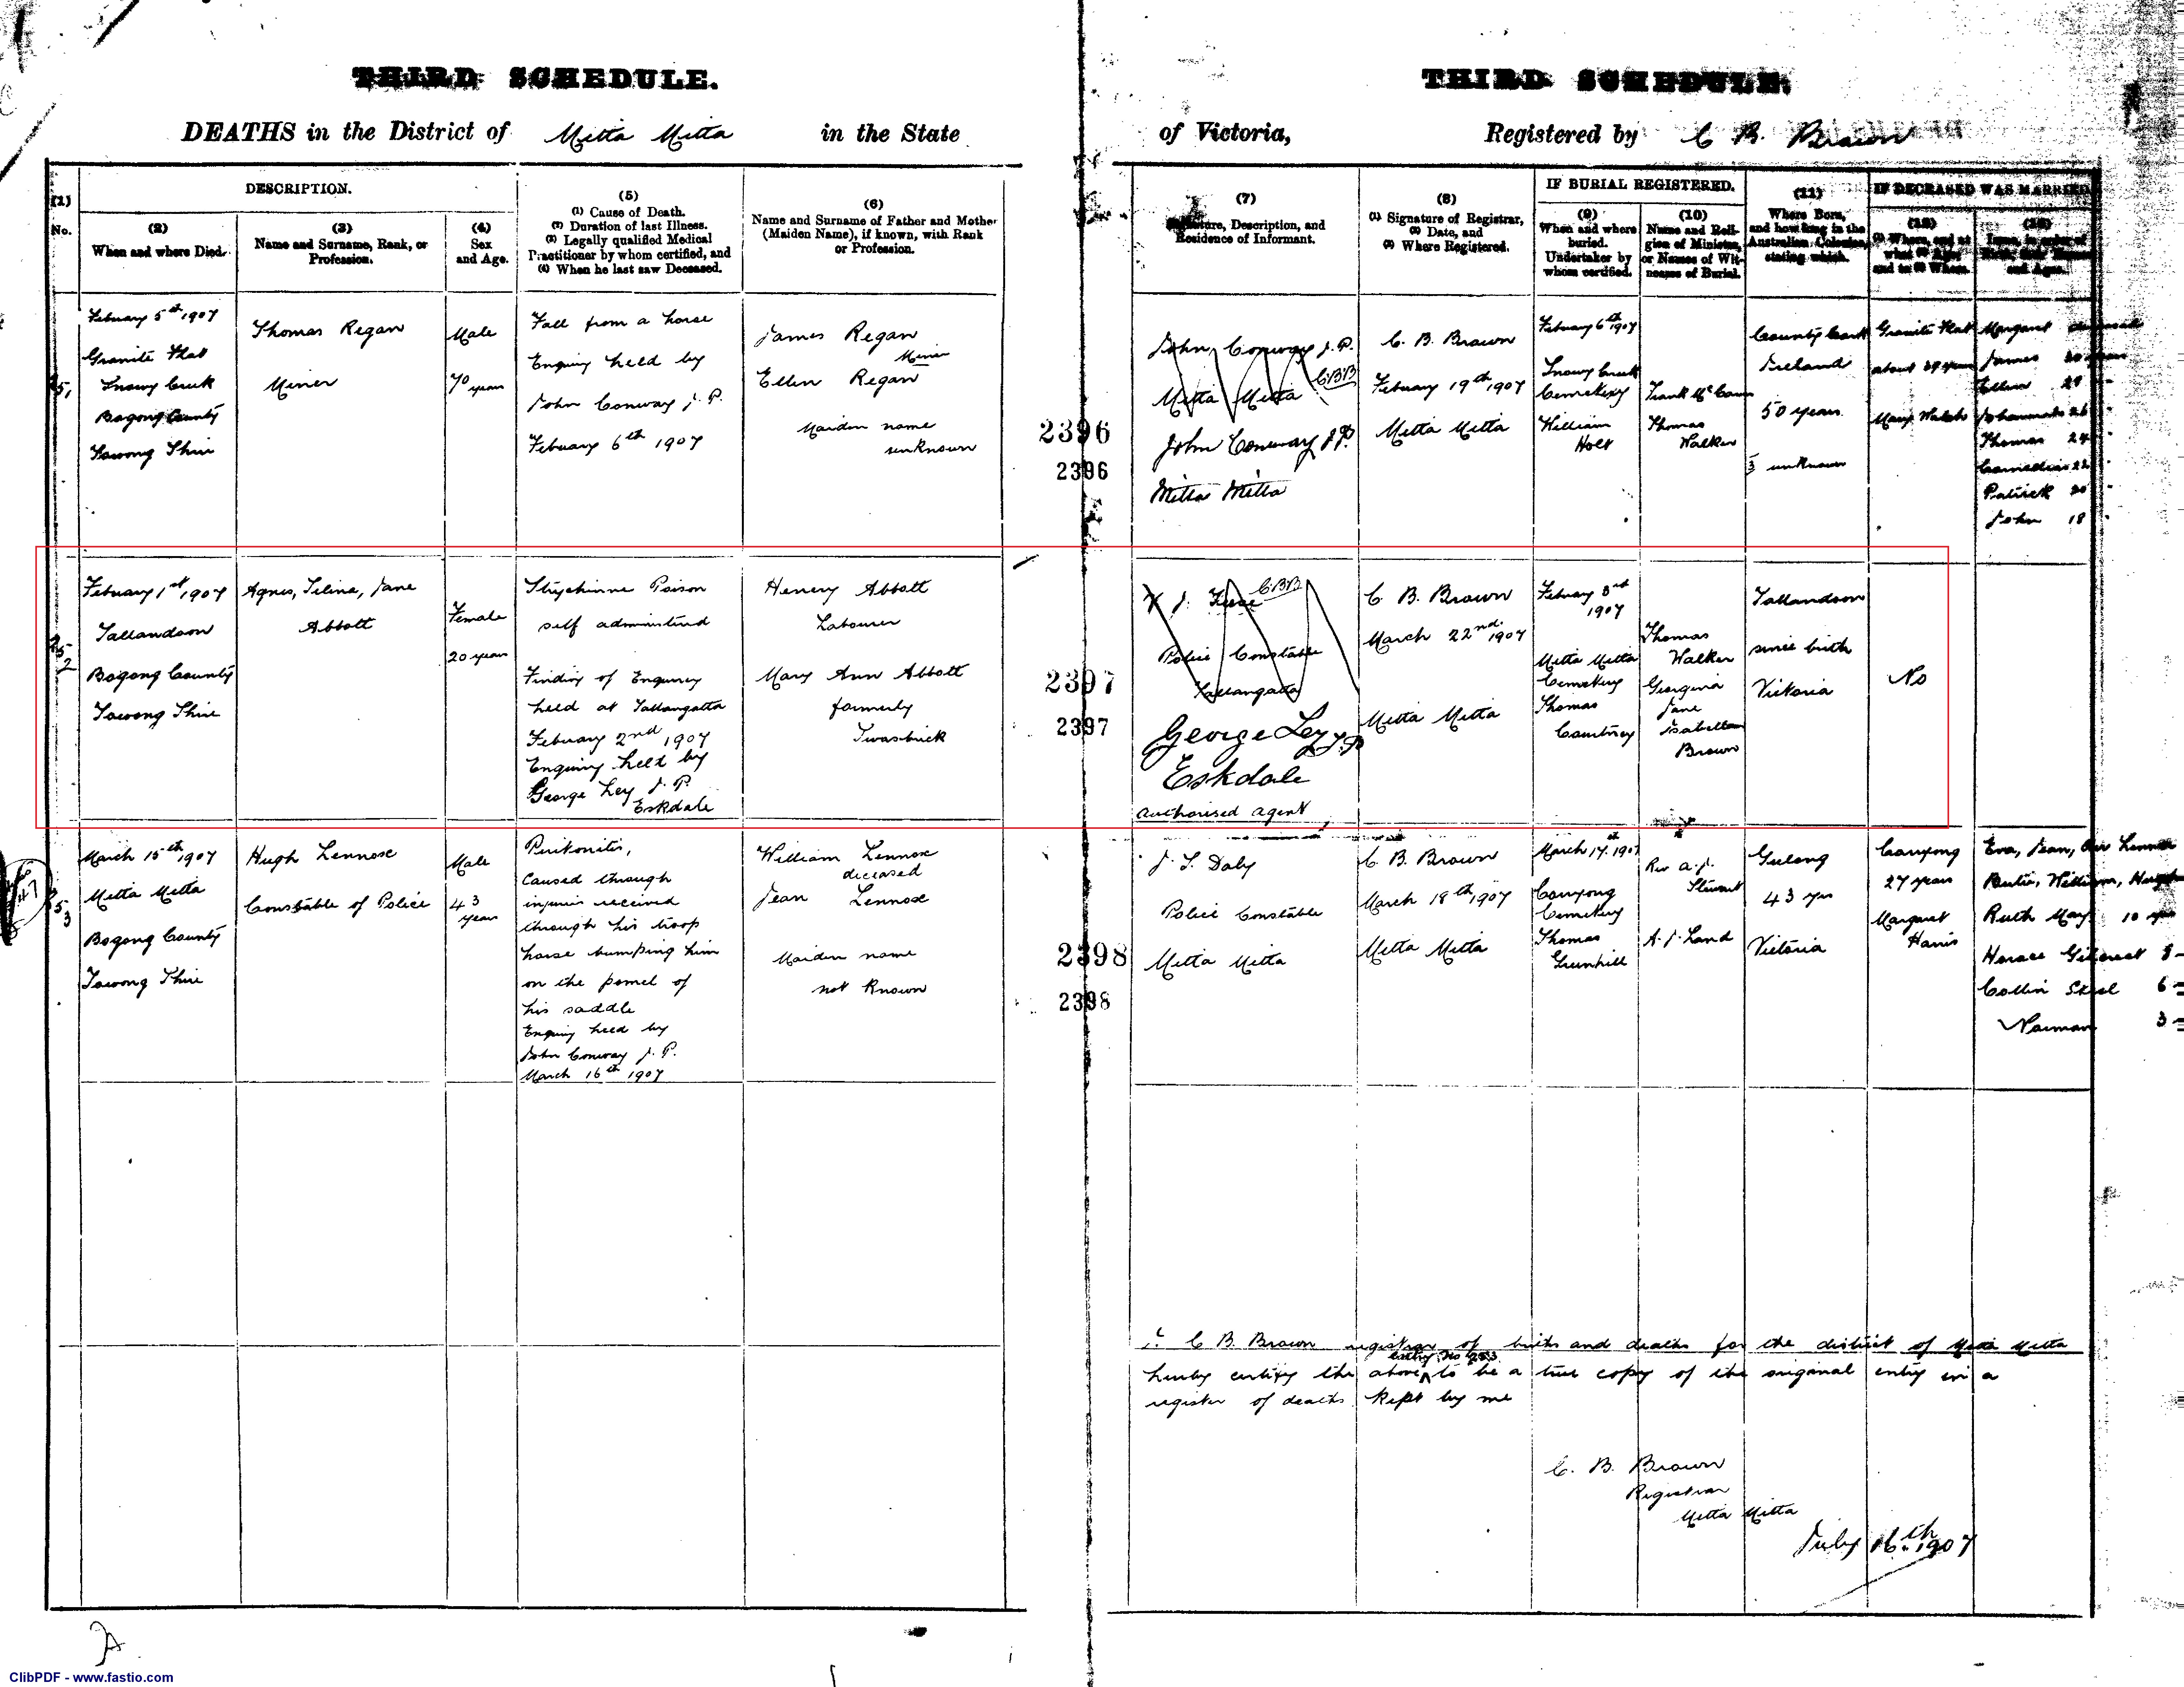 THIRD SCHEDULE.
THIRD SCHEDULE.
DEATHS in the District of Mitta Mitta in the State
of Victoria, Registered by C B. Brown
(1)
No.
DESCRIPTION.
(2)
When and where Died.
(3)
Name and Surname, Rank, or
Profession.
(4)
Sex
and Age.
(5)
(1) Cause of Death.
(2) Duration of last Illness.
(3) Legally qualified Medical
Practitioner by whom certified, and
(4) When he last saw Deceased.
(6)
Name and Surname of Father and Mother
(Maiden Name), if known, with Rank
or Profession.
(7)
Signature, Description, and
Residence of Informant.
(8)
(1) Signature of Registrar,
(2) Date, and
(3) Where Registered.
IF BURIAL REGISTERED.
(9)
When and where
buried.
Undertaker by
whom certified.
(10)
Name and Reli-
gion of Minister,
or Names of Wit-
nesses of Burial.
(11)
Where Born,
and how long in the
Australian Colonies,
stating which.
IF DECEASED WAS MARRIED
(12)
(1) Where, and at
what (2) Age,
and to (3) Whom.
(13)
Issue, in order of
Birth, their Names
and Ages.
Febuary 5th 1907
Granite Flat
Snowy Creek
Bogong County
Towong Shire
Thomas Regan
Miner
Male
70 years
Fall from a horse
Enquiry held by
John Conway J. P.
Febuary 6th 1907
James Regan
Miner
Ellen Regan
Maiden name
unknown
2396
2396
John Conway J. P.
Mitta Mitta CBB
John Conway J.P.
Mitta Mitta
C. B. Brown
Febuary 19th 1907
Mitta Mitta
Febuary 6th 1907
Snowy Creek
Cemetery
William
Holt
Thomas
Walker
County Cork
Ireland
50 years
unknown
Granite Flat
about 29 years
Mary Walsh
Margaret deceased
James 30 years
Ellen 29
Johannah 26
Thomas 24
Cornelius 22
Patrick 20
John 18
Febuary 1st 1907
Tallandoon
Bogong County
Towong Shire
Agnes, Selina, Jane
Abbott
Female
20 years
Strychinne Poison
self administered
Finding of Enquirey
held at Tallangatta
Febuary 2nd 1907
Enquiry held by
George Ley J. P.
Eskdale
Henery Abbott
Labourer
Mary Ann Abbott
formerly
2397
2397
CBB
Police Constable
Tallangatta
George Ley J.P
Eskdale
authorised agent
C. B. Brown
March 22nd 1907
Mitta Mitta
Febuary 3rd
1907
Mitta Mitta
Cemetery
Thomas
Thomas
Walker
Georgina
Jane
Isabella
Brown
Tallandoon
since birth
Victoria
No
March 15th 1907
Mitta Mitta
Bogong County
Towong Shire
Hugh Lennox
Constable of Police
Male
43
years
Peritonitis,
caused through
injuries received
through his troop
horse bumping him
on the pomel of
his saddle
Enquiry held by
John Conway J. P.
March 16th 1907
William Lennox
deceased
Jean Lennox
Maiden name
not known
2398
2398
J. S. Daly
Police Constable
Mitta Mitta
C. B. Brown
March 18th 1907
Mitta Mitta
March 17. 1907
Corryong
Cemetery
Thomas
Greenhill
Rev A. J.
Stewart
A. J. Land
Geelong
43 yrs
Victoria
Corryong
27 years
Margaret
Harris
Eva, Jean,
Ruth May 10 yrs
Horace
6
Norman 3
I C B. Brown registrar of births and deaths for the district of Mitta Mitta
hereby certify the above entry No 253 to be a true copy of the original entry in a
register of deaths kept by me
C. B. Brown
Registrar
Mitta Mitta
July 16th 1907
ClibPDF - www.fastio.com